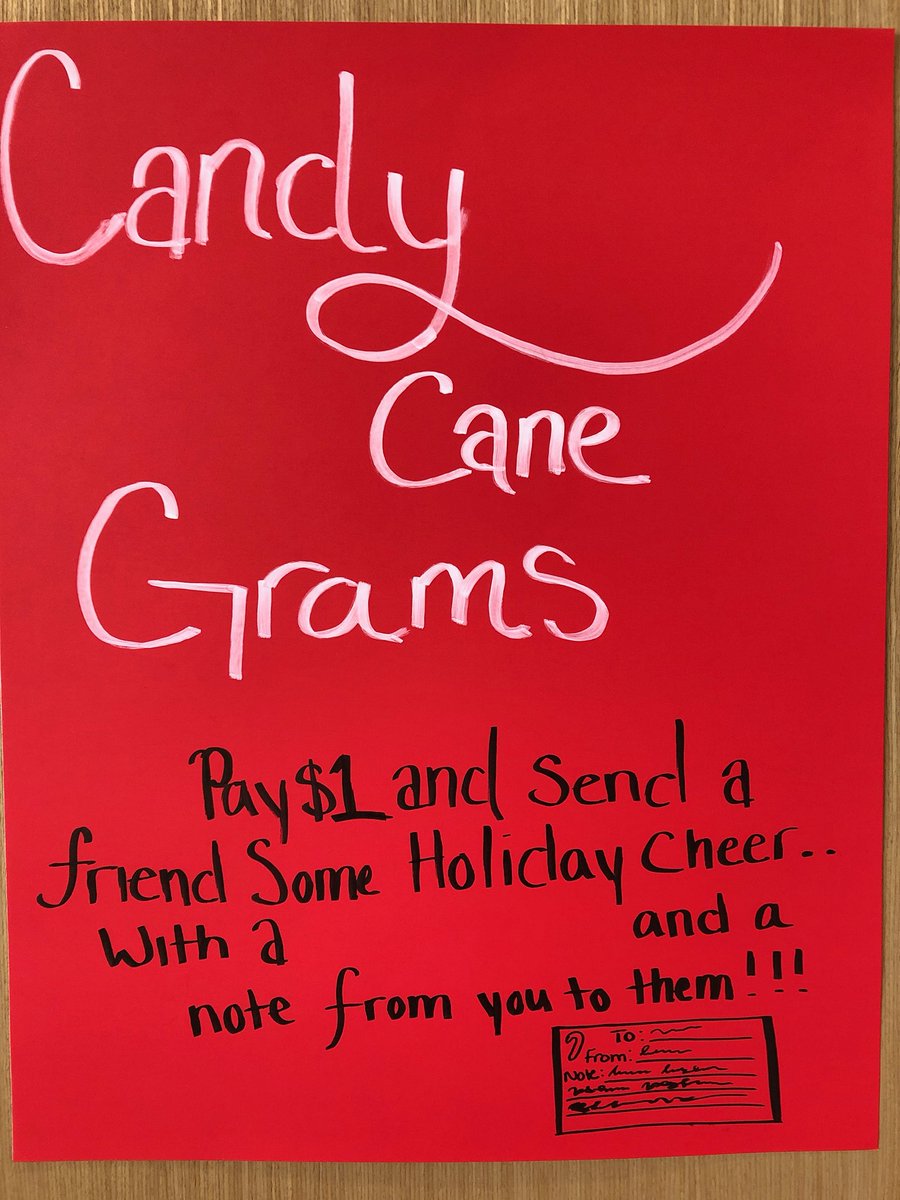 Candy
Cane
Grams
Pay $1 and Send a
friend Some Holiday Cheer..
With a and a
note from you to them!!!
To:
From:
Note: